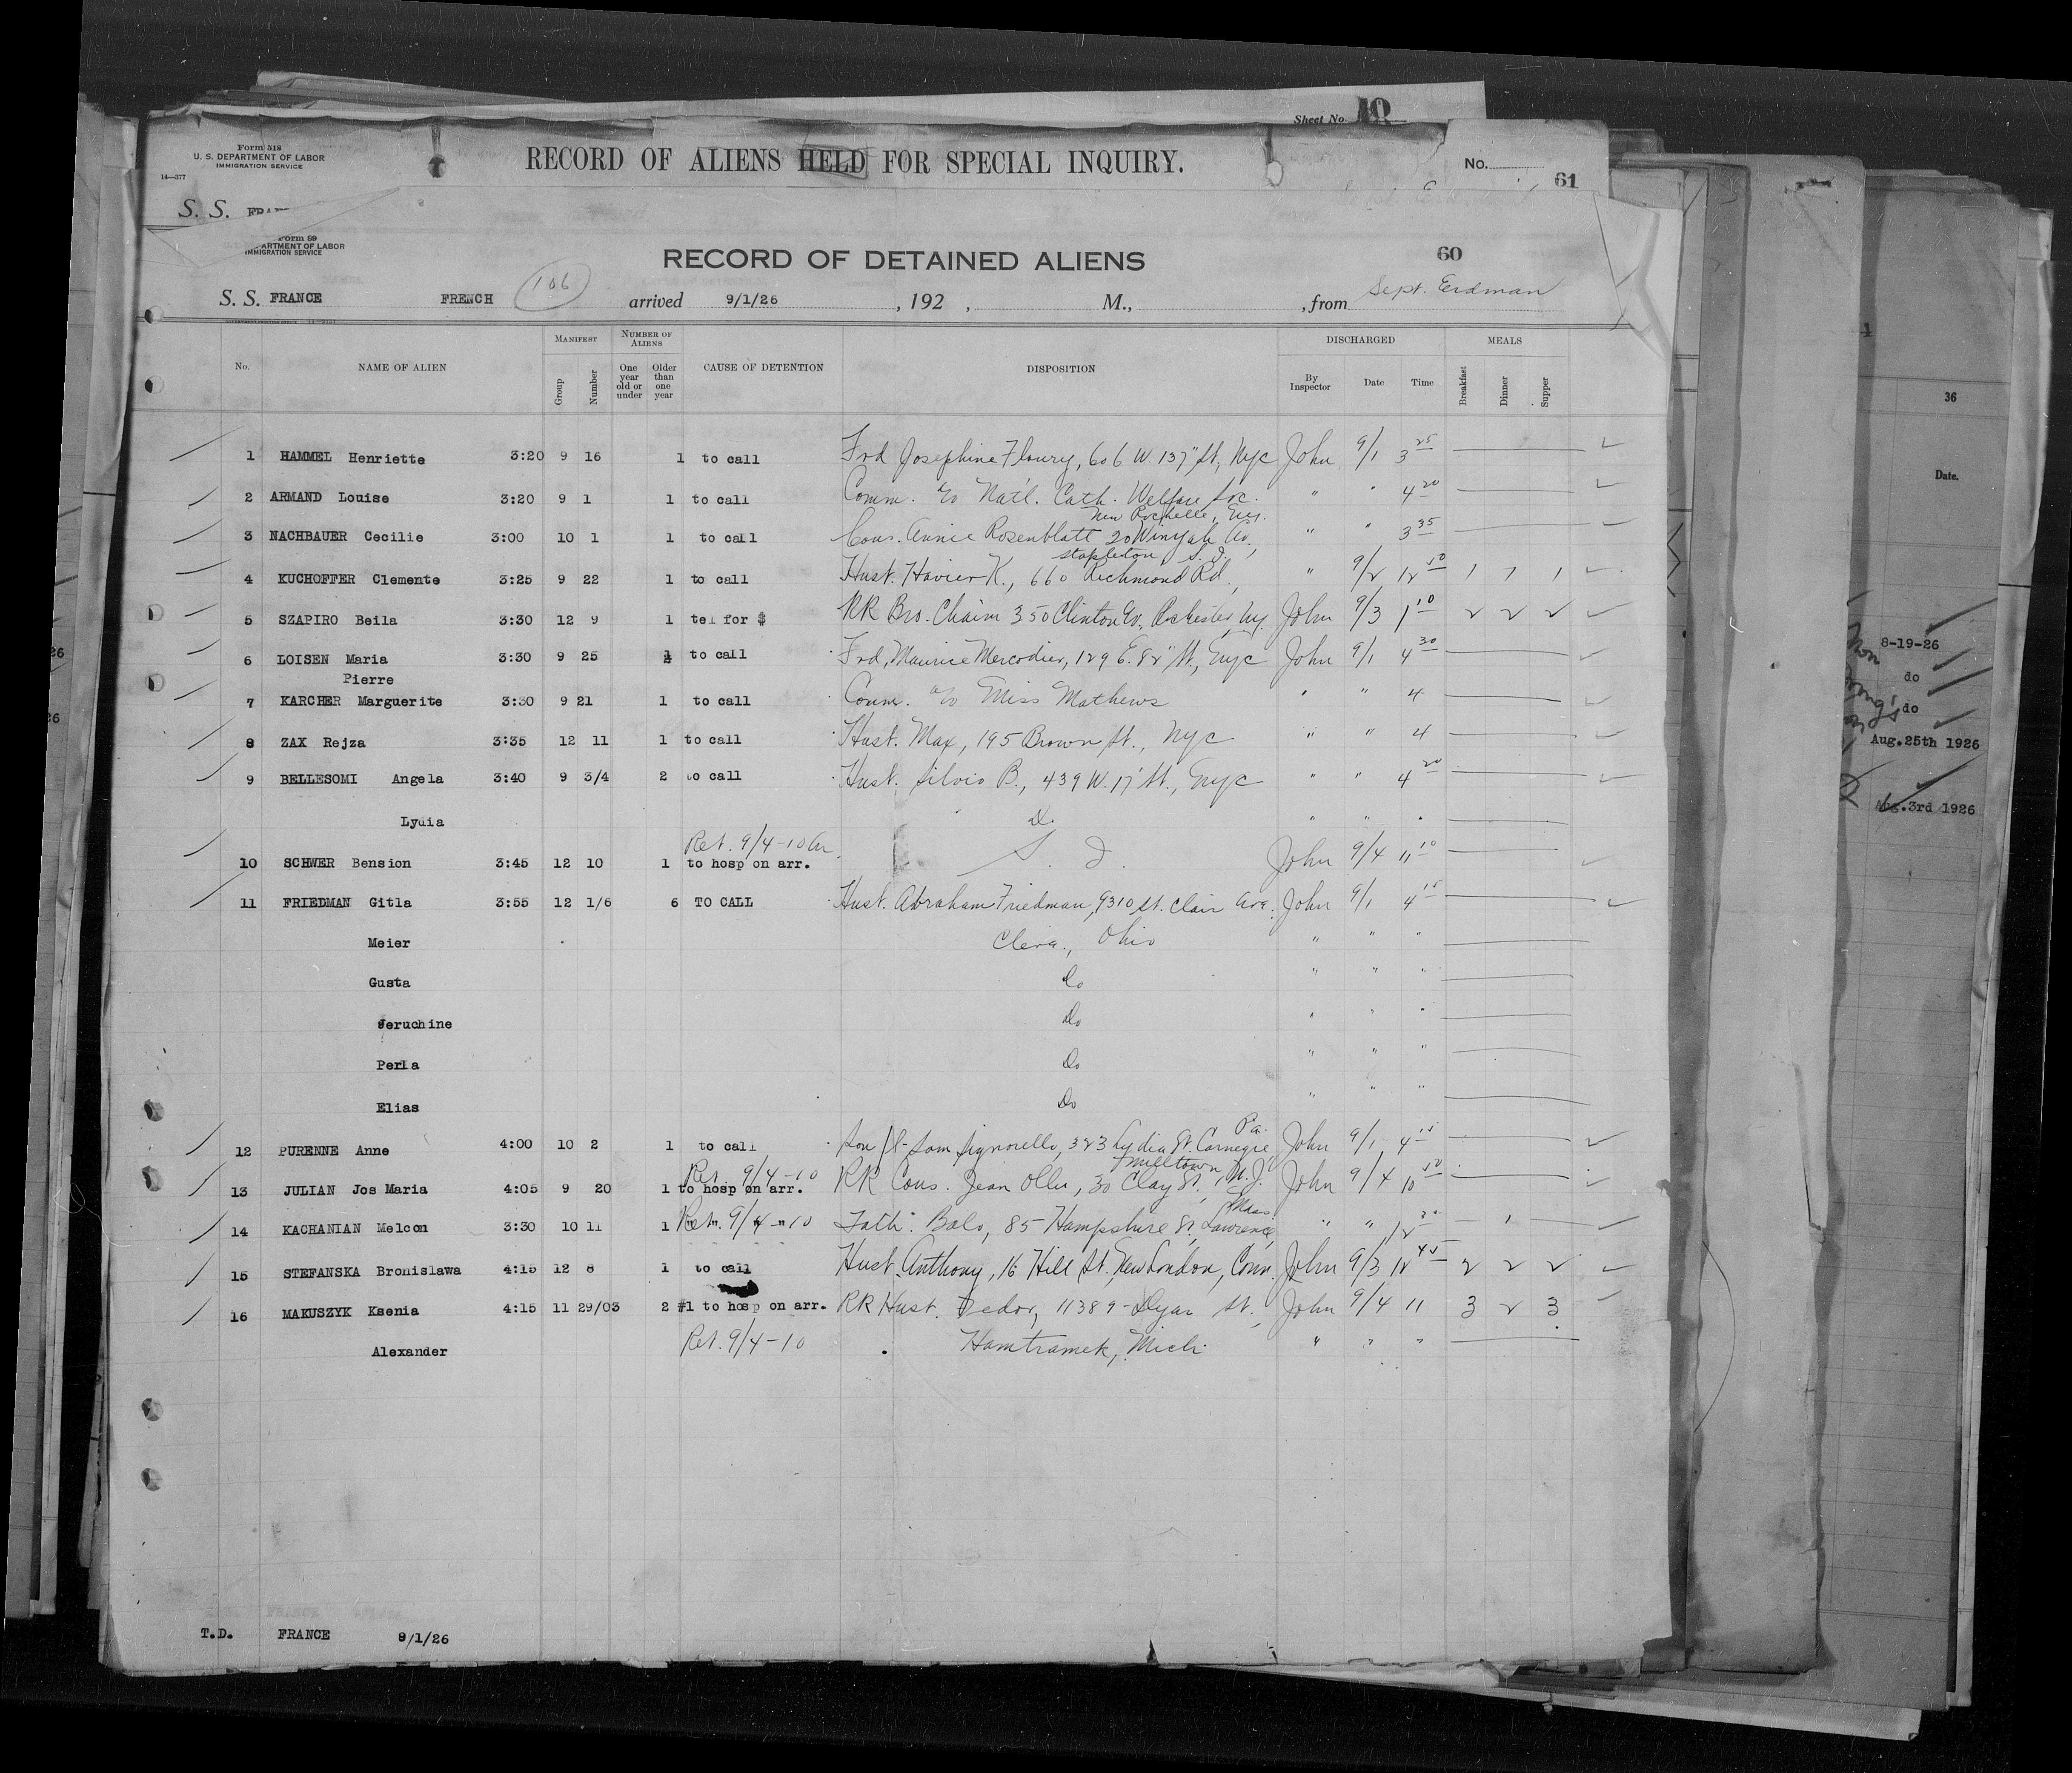 Sheet No. 40
Form 518
U. S. DEPARTMENT OF LABOR
IMMIGRATION SERVICE
14—377
RECORD OF ALIENS HELD FOR SPECIAL INQUIRY.
No.
61
S. S.
Form 89
ARTMENT OF LABOR
IMMIGRATION SERVICE
RECORD OF DETAINED ALIENS
60
S. S. FRANCE FRENCH 106 arrived 9/1/26, 192 , M., , from Sept. Erdman
No. NAME OF ALIEN MANIFEST Group Number NUMBER OF ALIENS One year old or under Older than one year CAUSE OF DETENTION DISPOSITION DISCHARGED By Inspector Date Time MEALS Breakfast Dinner Supper
1 HAMMEL Henriette 3:20 9 16 1 to call Frd Josephine Floury, 606 W. 137" St, Nyc John 9/1 3 25
2 ARMAND Louise 3:20 9 1 1 to call Comm. c/o Nat'l. Cath. Welfare Soc. " " 4 20
New Rochelle, Ny.
3 NACHBAUER Cecilie 3:00 10 1 1 to call Cous. Annie Rosenblatt 20 Winyah Av, " " 3 35
Stapleton S. I.
4 KUCHOFFER Clemente 3:25 9 22 1 to call Husb. Havier K., 660 Richmond Rd, " 9/2 12 50 1 1 1
5 SZAPIRO Beila 3:30 12 9 1 tel for $ RR Bro. Chaim 350 Clinton Av, Rochester Ny. John 9/3 1 10 2 2 2
6 LOISEN Maria 3:30 9 25 to call Frd, Maurice Mercodier, 129 E. 82" St, Nyc John 9/1 4 30
Pierre
7 KARCHER Marguerite 3:30 9 21 1 to call Comm. c/o Miss Mathews " " 4
8 ZAX Rejza 3:35 12 11 1 to call Husb. Max, 195 Brown St., Nyc " " 4
9 BELLESOMI Angela 3:40 9 3/4 2 to call Husb. Silvio B., 439 W. 17" St., Nyc " " 4 20
Lydia Do " " "
Ret. 9/4-10
10 SCHWER Bension 3:45 12 10 1 to hosp on arr. S. I. John 9/4 11 10
11 FRIEDMAN Gitla 3:55 12 1/6 6 TO CALL Husb. Abraham Friedman, 9310 St. Clair Ave. John 9/1 4 15
Meier Cleva., Ohio " " "
Gusta Do " " "
Jeruchine Do " " "
Perla Do " " "
Elias Do " " "
Pa.
12 PURENNE Anne 4:00 10 2 1 to call Son Sam Signorello, 323 Lydia St. Carnegie John 9/1 4 15
Ret. 9/4-10 Milltown, N.J.
13 JULIAN Jos Maria 4:05 9 20 1 to hosp on arr. RR Cous. Jean Ollu, 30 Clay St., John 9/4 10 50
Mass
14 KACHANIAN Melcon 3:30 10 11 1 Ret. 9/4-10 Fath. Balo, 85 Hampshire St, Lawrence, " " 12 30 1
15 STEFANSKA Bronislawa 4:15 12 8 1 to call Husb. Anthony, 16 Hill St. New London, Conn. John 9/3 12 45 2 2 2
16 MAKUSZYK Ksenia 4:15 11 29/03 2 #1 to hosp on arr. RR Husb. Fedor, 11389-Dyar St., John 9/4 11 3 2 3
Alexander Ret. 9/4-10 Hamtramck, Mich " " "
T.D. FRANCE 9/1/26
36
Date.
8-19-26
do
do
Aug.25th 1926
Aug.3rd 1926